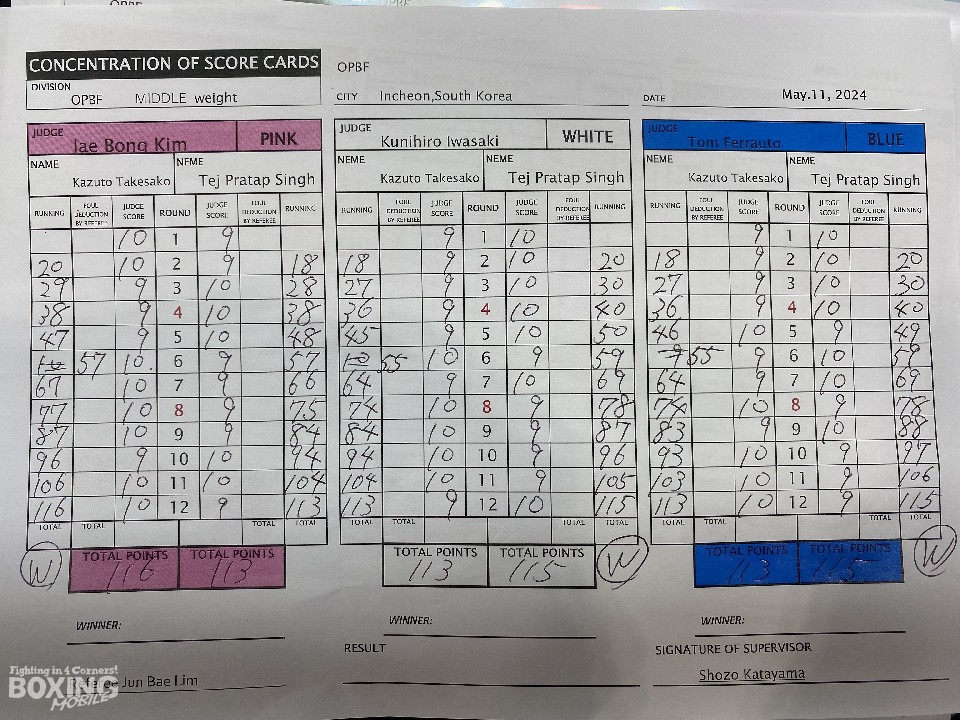 OPBF
CONCENTRATION OF SCORE CARDS
OPBF
DIVISION
OPBF MIDDLE weight
CITY Incheon,South Korea
DATE May.11, 2024
JUDGE Jae Bong Kim PINK
JUDGE Kunihiro Iwasaki WHITE
JUDGE Tom Ferrauto BLUE
NAME Kazuto Takesako NEME Tej Pratap Singh
NEME Kazuto Takesako NEME Tej Pratap Singh
NEME Kazuto Takesako NEME Tej Pratap Singh
RUNNING FOUL DEDUCTION BY REFEREE JUDGE SCORE ROUND JUDGE SCORE FOUL DEDUCTION BY REFEREE RUNNING
RUNNING FOUL DEDUCTION BY REFEREE JUDGE SCORE ROUND JUDGE SCORE FOUL DEDUCTION BY REFEREE RUNNING
RUNNING FOUL DEDUCTION BY REFEREE JUDGE SCORE ROUND JUDGE SCORE FOUL DEDUCTION BY REFEREE RUNNING
10 1 9 9 1 10 9 1 10
20 10 2 9 18 18 9 2 10 20 18 9 2 10 20
29 9 3 10 28 27 9 3 10 30 27 9 3 10 30
38 9 4 10 38 36 9 4 10 40 36 9 4 10 40
47 9 5 10 48 45 9 5 10 50 46 10 5 9 49
57 10 6 9 57 55 10 6 9 59 55 9 6 10 59
67 10 7 9 66 64 9 7 10 69 64 9 7 10 69
77 10 8 9 75 74 10 8 9 78 74 10 8 9 78
87 10 9 9 84 84 10 9 9 87 83 9 9 10 88
96 9 10 10 94 94 10 10 9 96 93 10 10 9 97
106 10 11 10 104 104 10 11 9 105 103 10 11 9 106
116 10 12 9 113 113 9 12 10 115 113 10 12 9 115
TOTAL TOTAL TOTAL TOTAL TOTAL TOTAL TOTAL TOTAL TOTAL TOTAL TOTAL TOTAL
W TOTAL POINTS TOTAL POINTS TOTAL POINTS TOTAL POINTS W TOTAL POINTS TOTAL POINTS W
116 113 113 115 113 115
WINNER: WINNER: WINNER:
RESULT
SIGNATURE OF SUPERVISOR
Shozo Katayama
Referee Jun Bae Lim
Fighting in 4 Corners!
BOXING
MOBILE